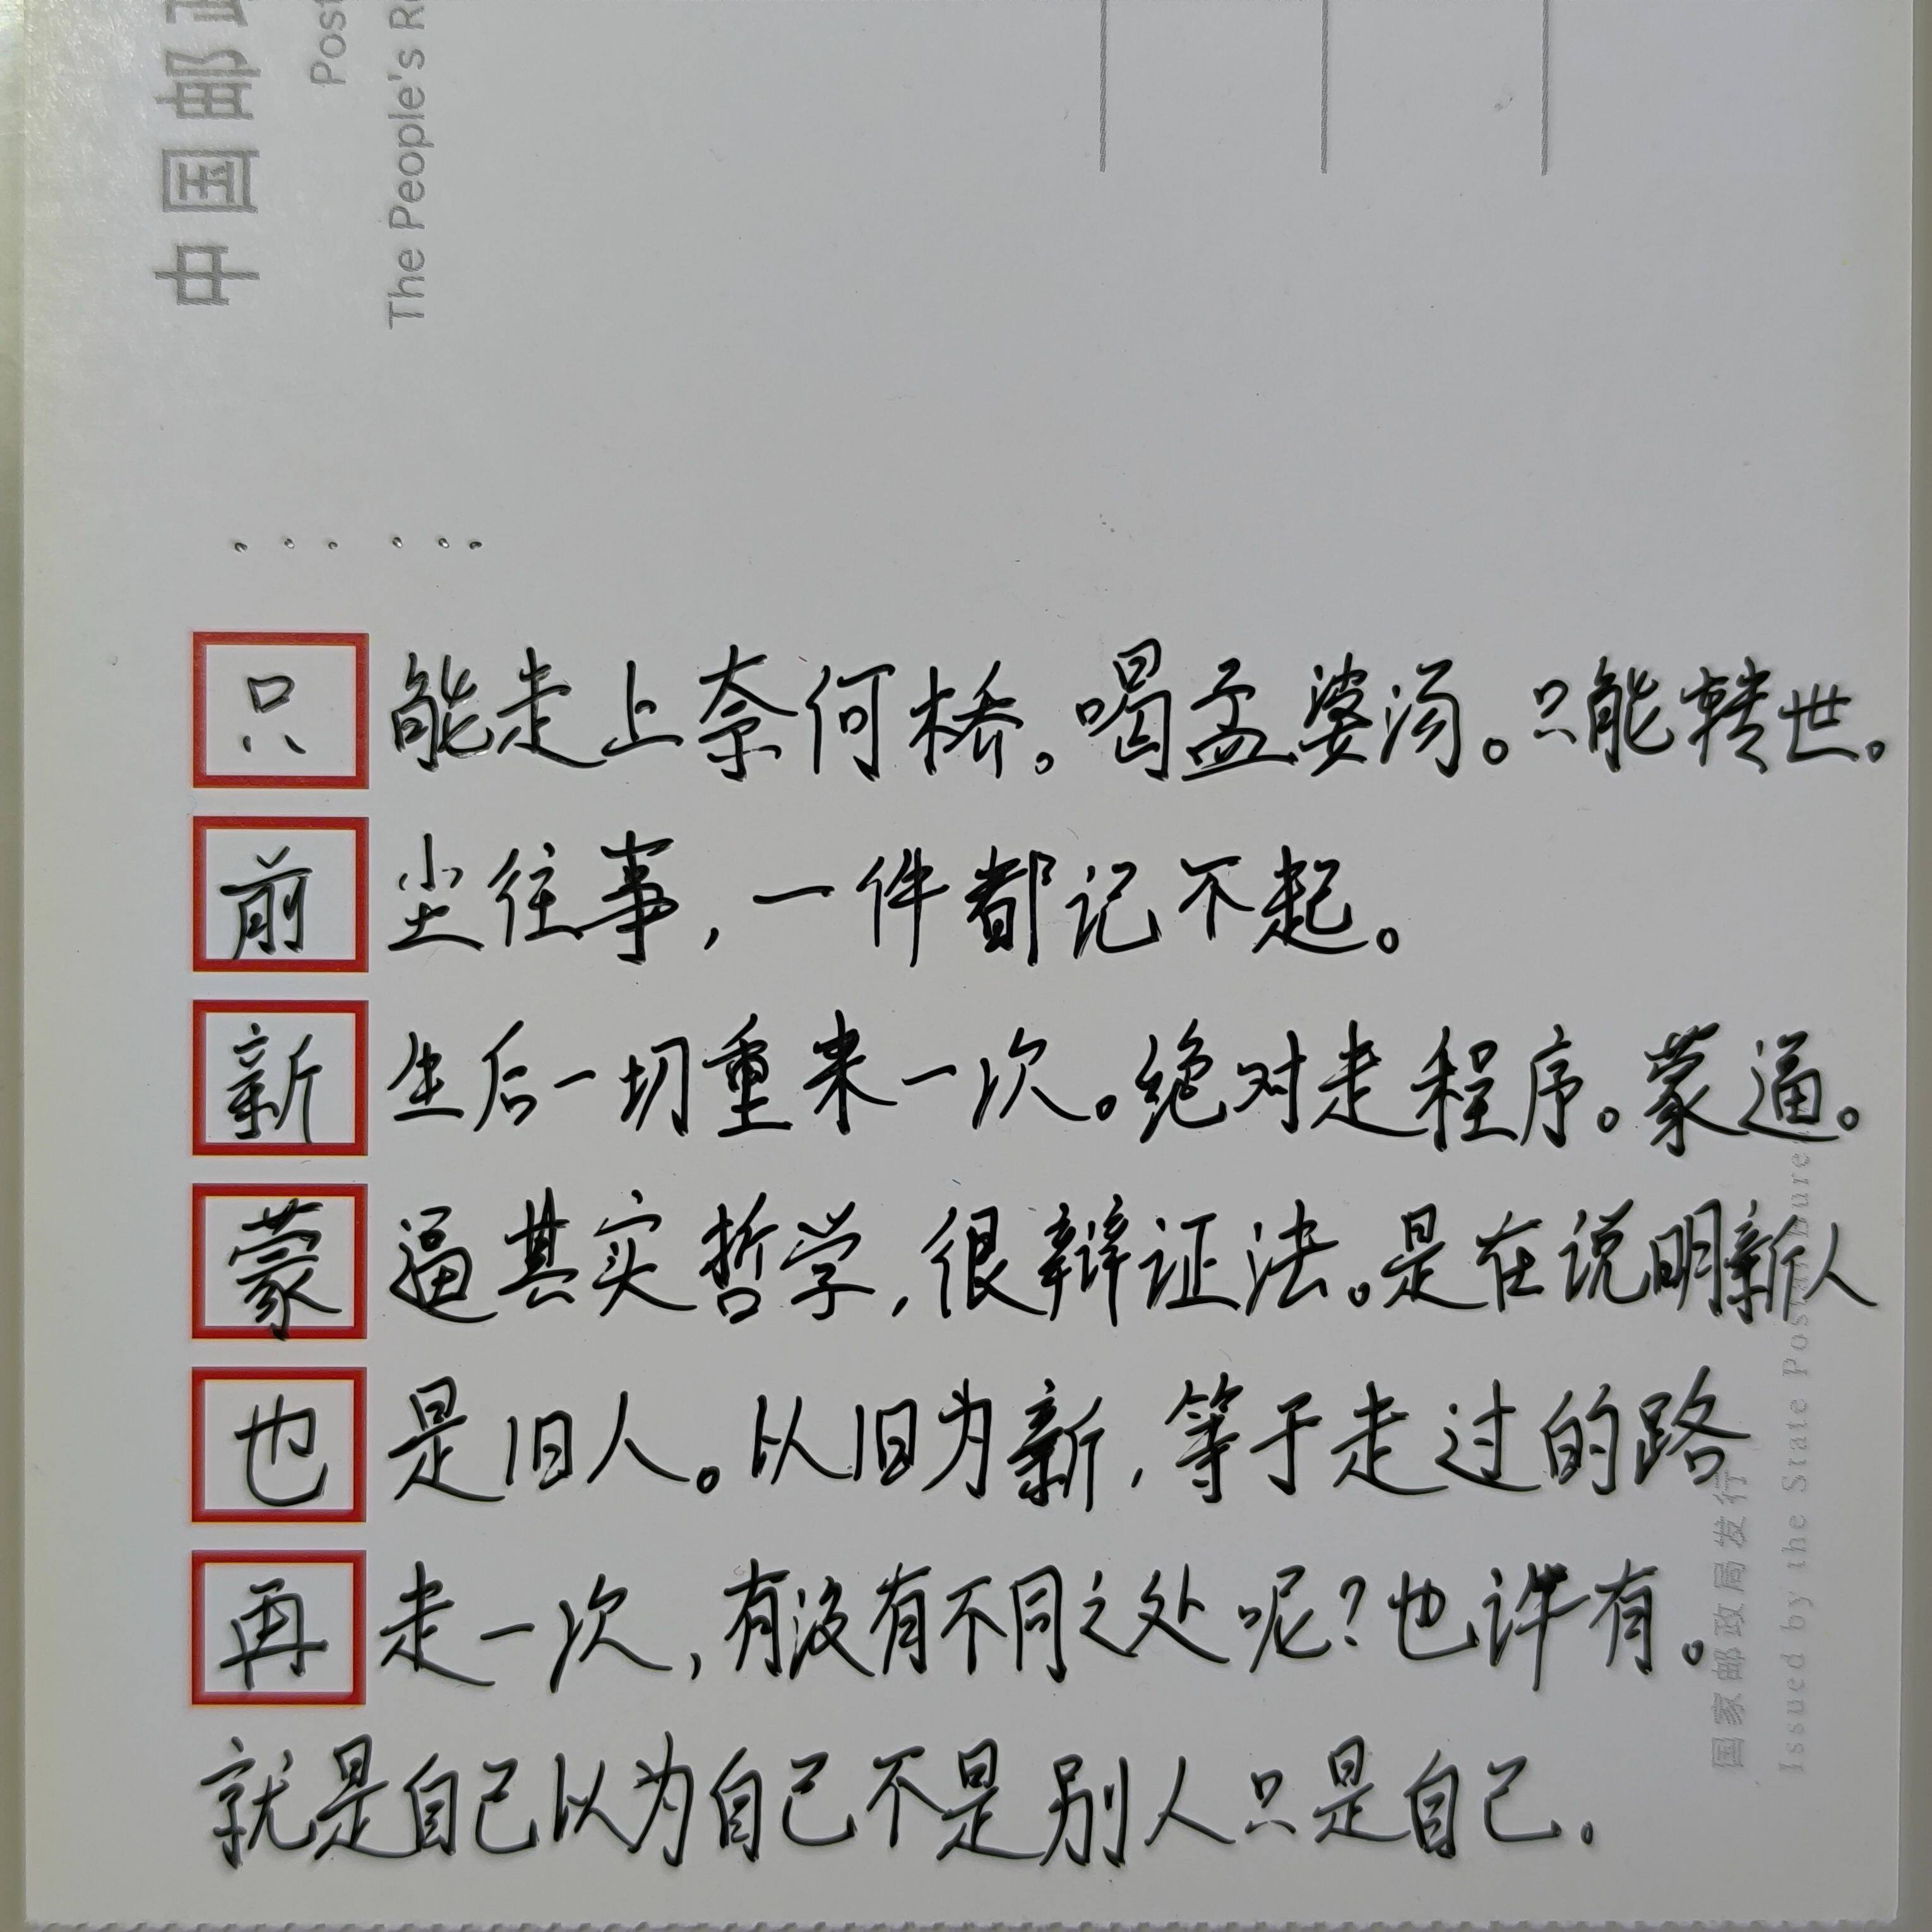 中国邮
Post
The People's R
......
只能走上奈何桥。喝孟婆汤。只能转世。
前尘往事，一件都记不起。
新生后一切重来一次。绝对走程序。蒙逼。
蒙逼其实哲学，很辩证法。是在说明新人
也是旧人。以旧为新，等于走过的路
再走一次，有没有不同之处呢？也许有。
就是自己以为自己不是别人只是自己.
国家邮政局发行
Issued by the State Postal Bureau